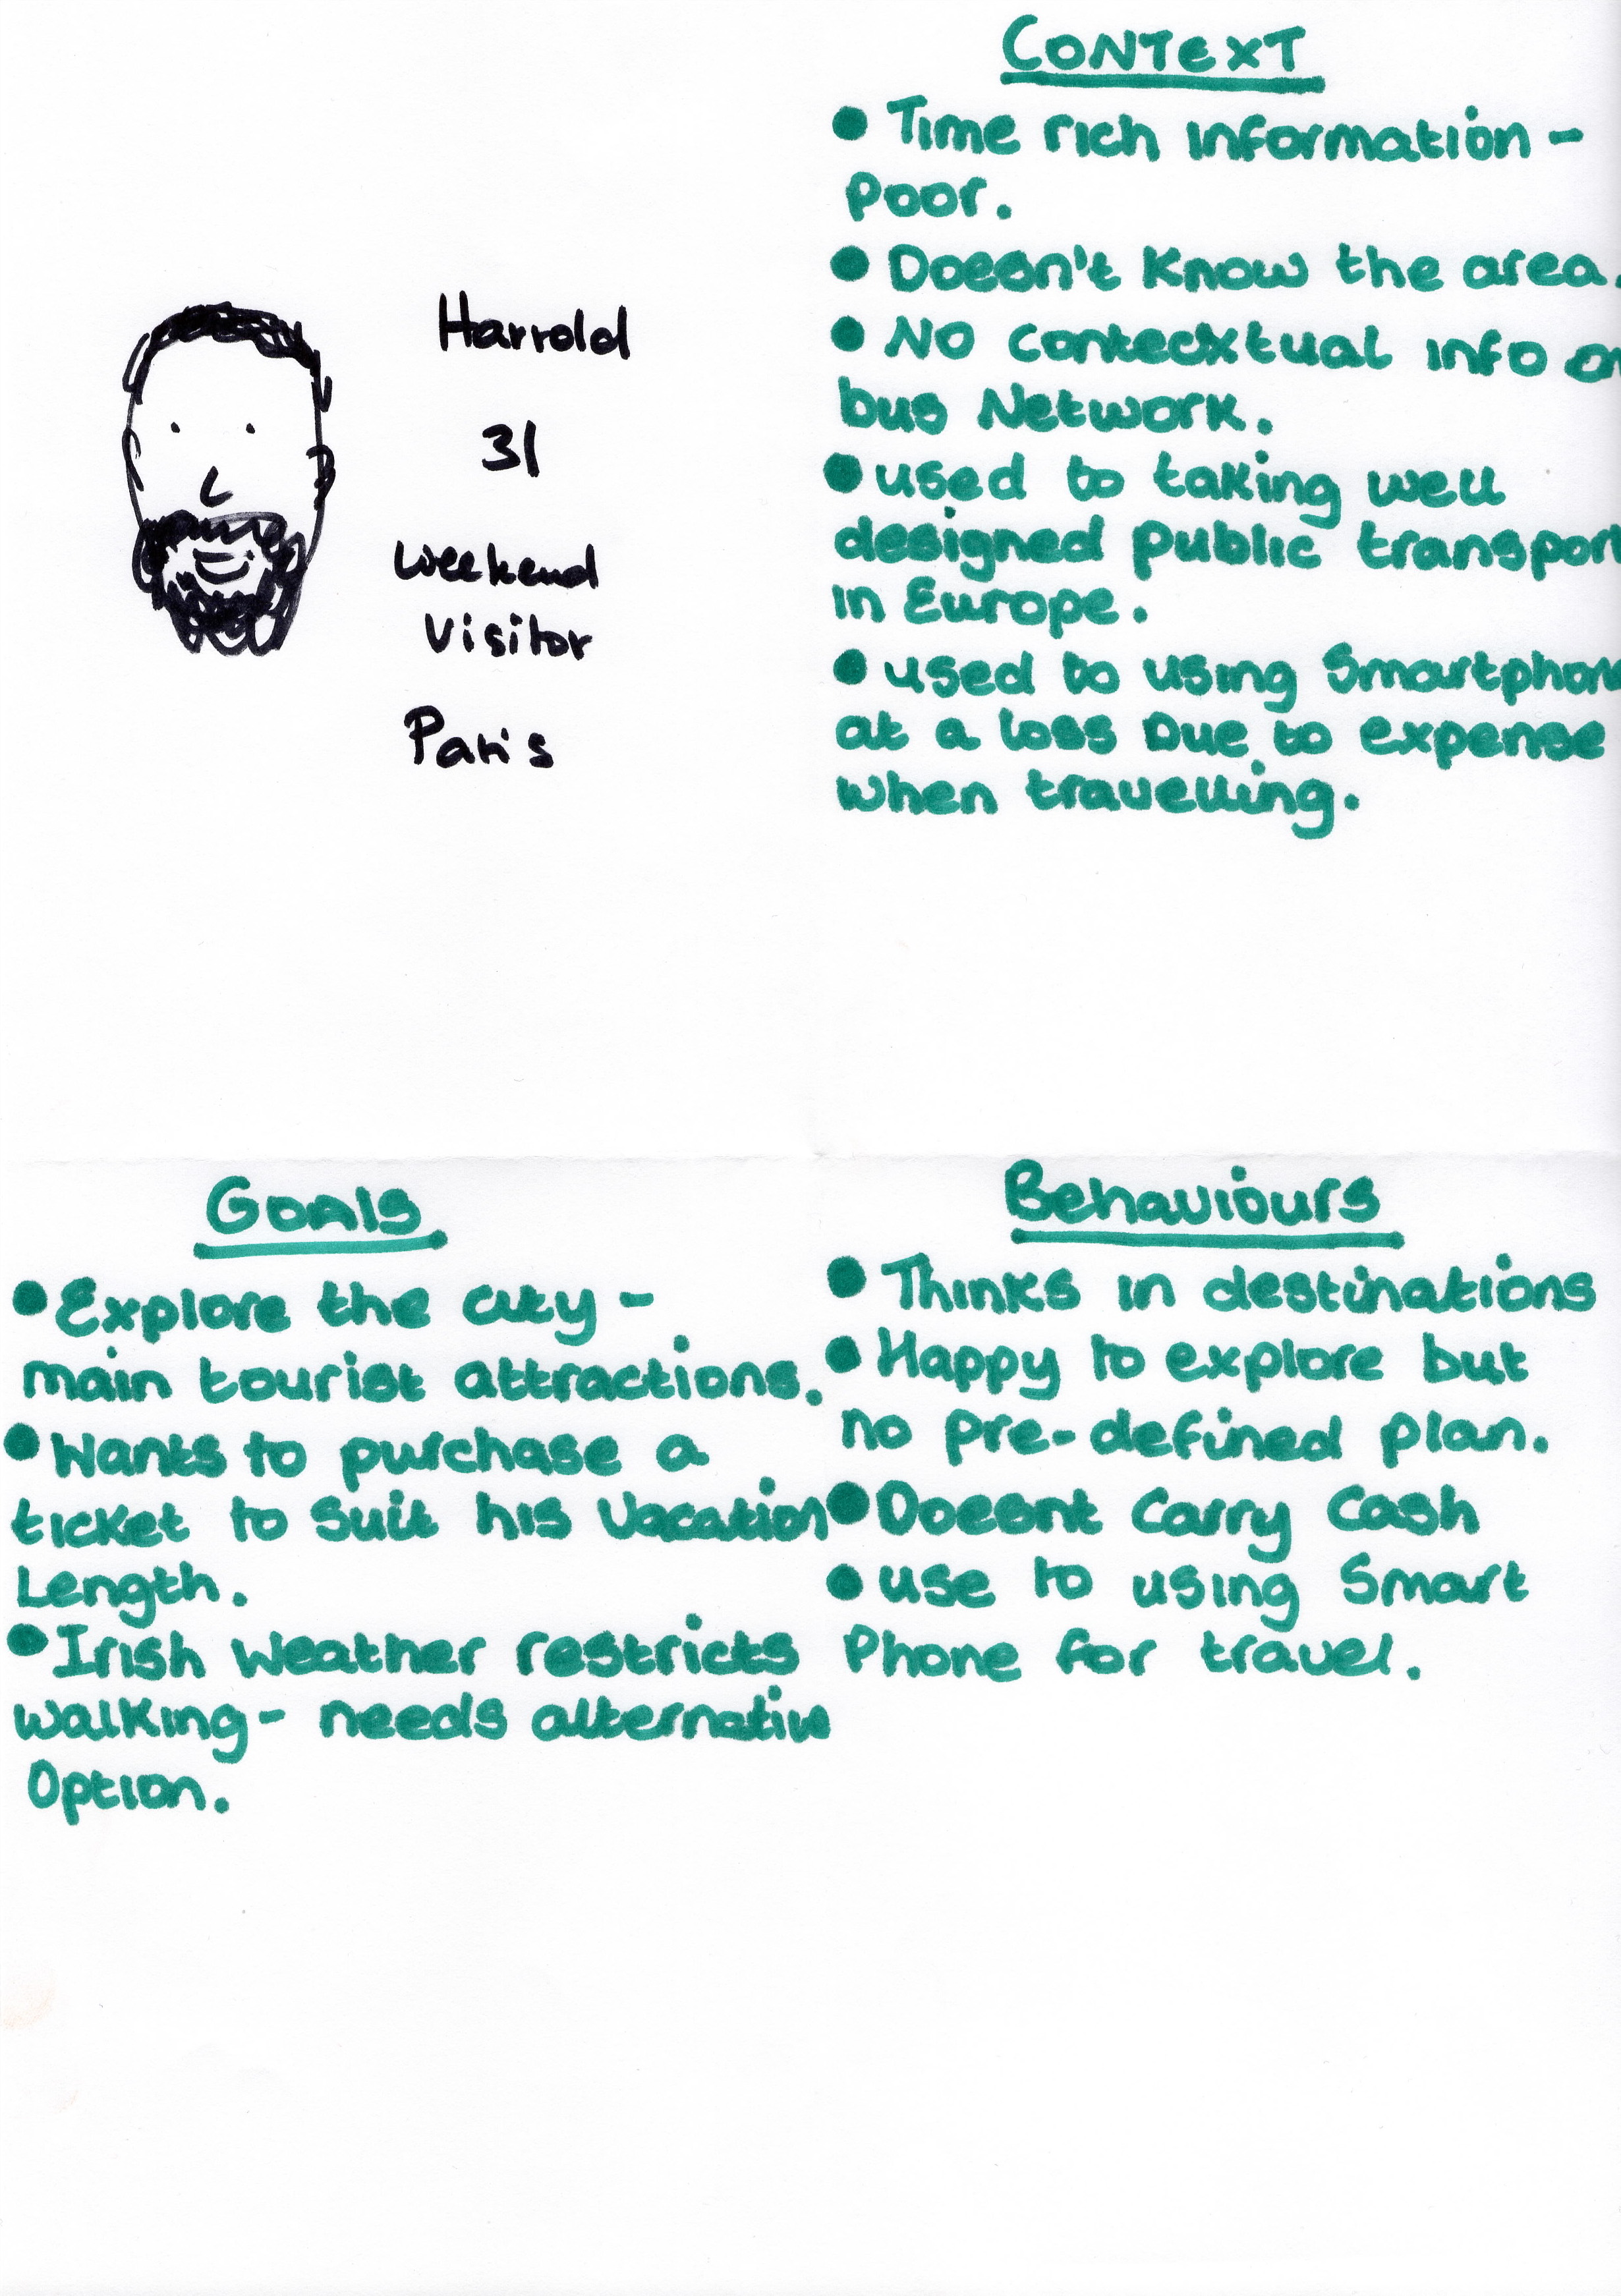 Harrold
31
Weekend
Visitor
Paris
CONTEXT
● Time rich information -
Poor.
● Doesn't Know the area.
● NO contecxtual info on
bus Network.
● used to taking well
designed public transport
in Europe.
● used to using Smartphone
at a loss Due to expense
when travelling.
Goals
● Explore the city -
main tourist attractions.
● Wants to purchase a
ticket to Suit his Vacation
Length.
● Irish Weather restricts
walking- needs alternative
Option.
Behaviours
● Thinks in destinations
● Happy to explore but
no pre-defined plan.
● Doesnt Carry Cash
● use to using Smart
Phone for travel.